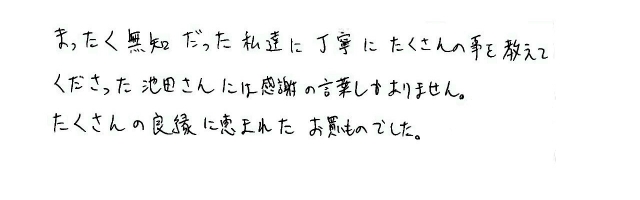 まったく無知だった私達に丁寧にたくさんの事を教えて
くださった池田さんには感謝の言葉しかありません。
たくさんの良縁に恵まれたお買ものでした。